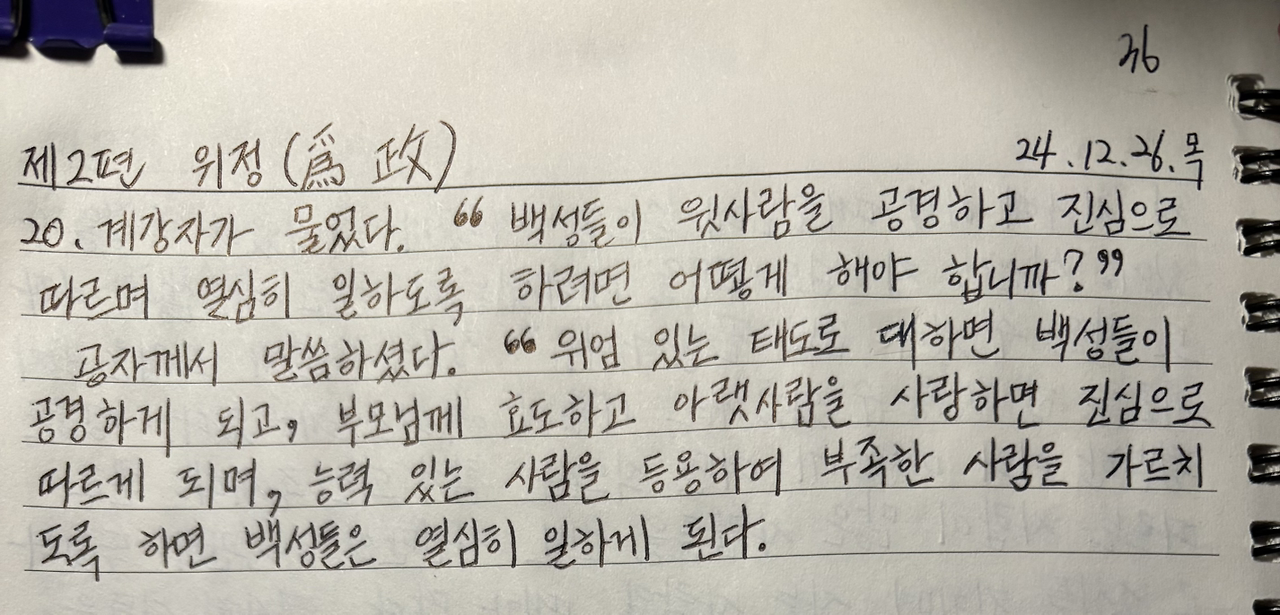 36
제2편 위정(爲政) 24.12.26.목
20. 계강자가 물었다. “백성들이 윗사람을 공경하고 진심으로
따르며 열심히 일하도록 하려면 어떻게 해야 합니까?”
공자께서 말씀하셨다. “위엄 있는 태도로 대하면 백성들이
공경하게 되고, 부모님께 효도하고 아랫사람을 사랑하면 진심으로
따르게 되며, 능력 있는 사람을 등용하여 부족한 사람을 가르치
도록 하면 백성들은 열심히 일하게 된다.